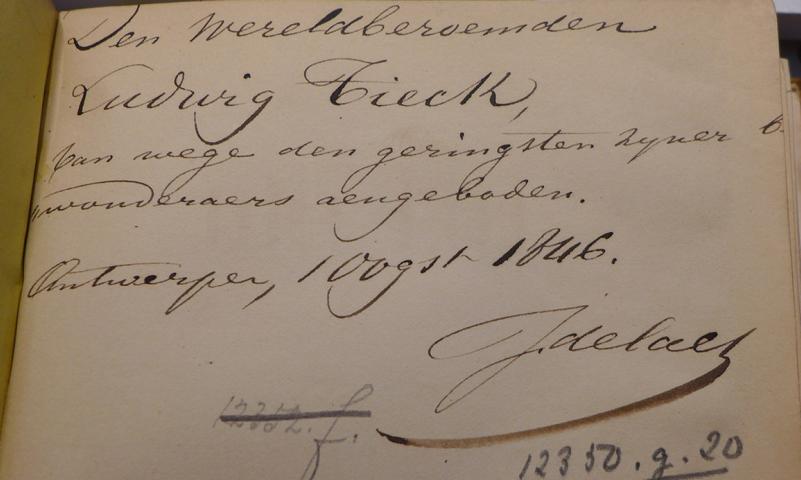 Den Wereldberoemden
Ludwig Tieck,
van wege den geringsten zyner b.
wonderaers aengeboden.
Antwerpen, 1 Oogst 1846.
J. de Laet
12352. f.
12350.g.20